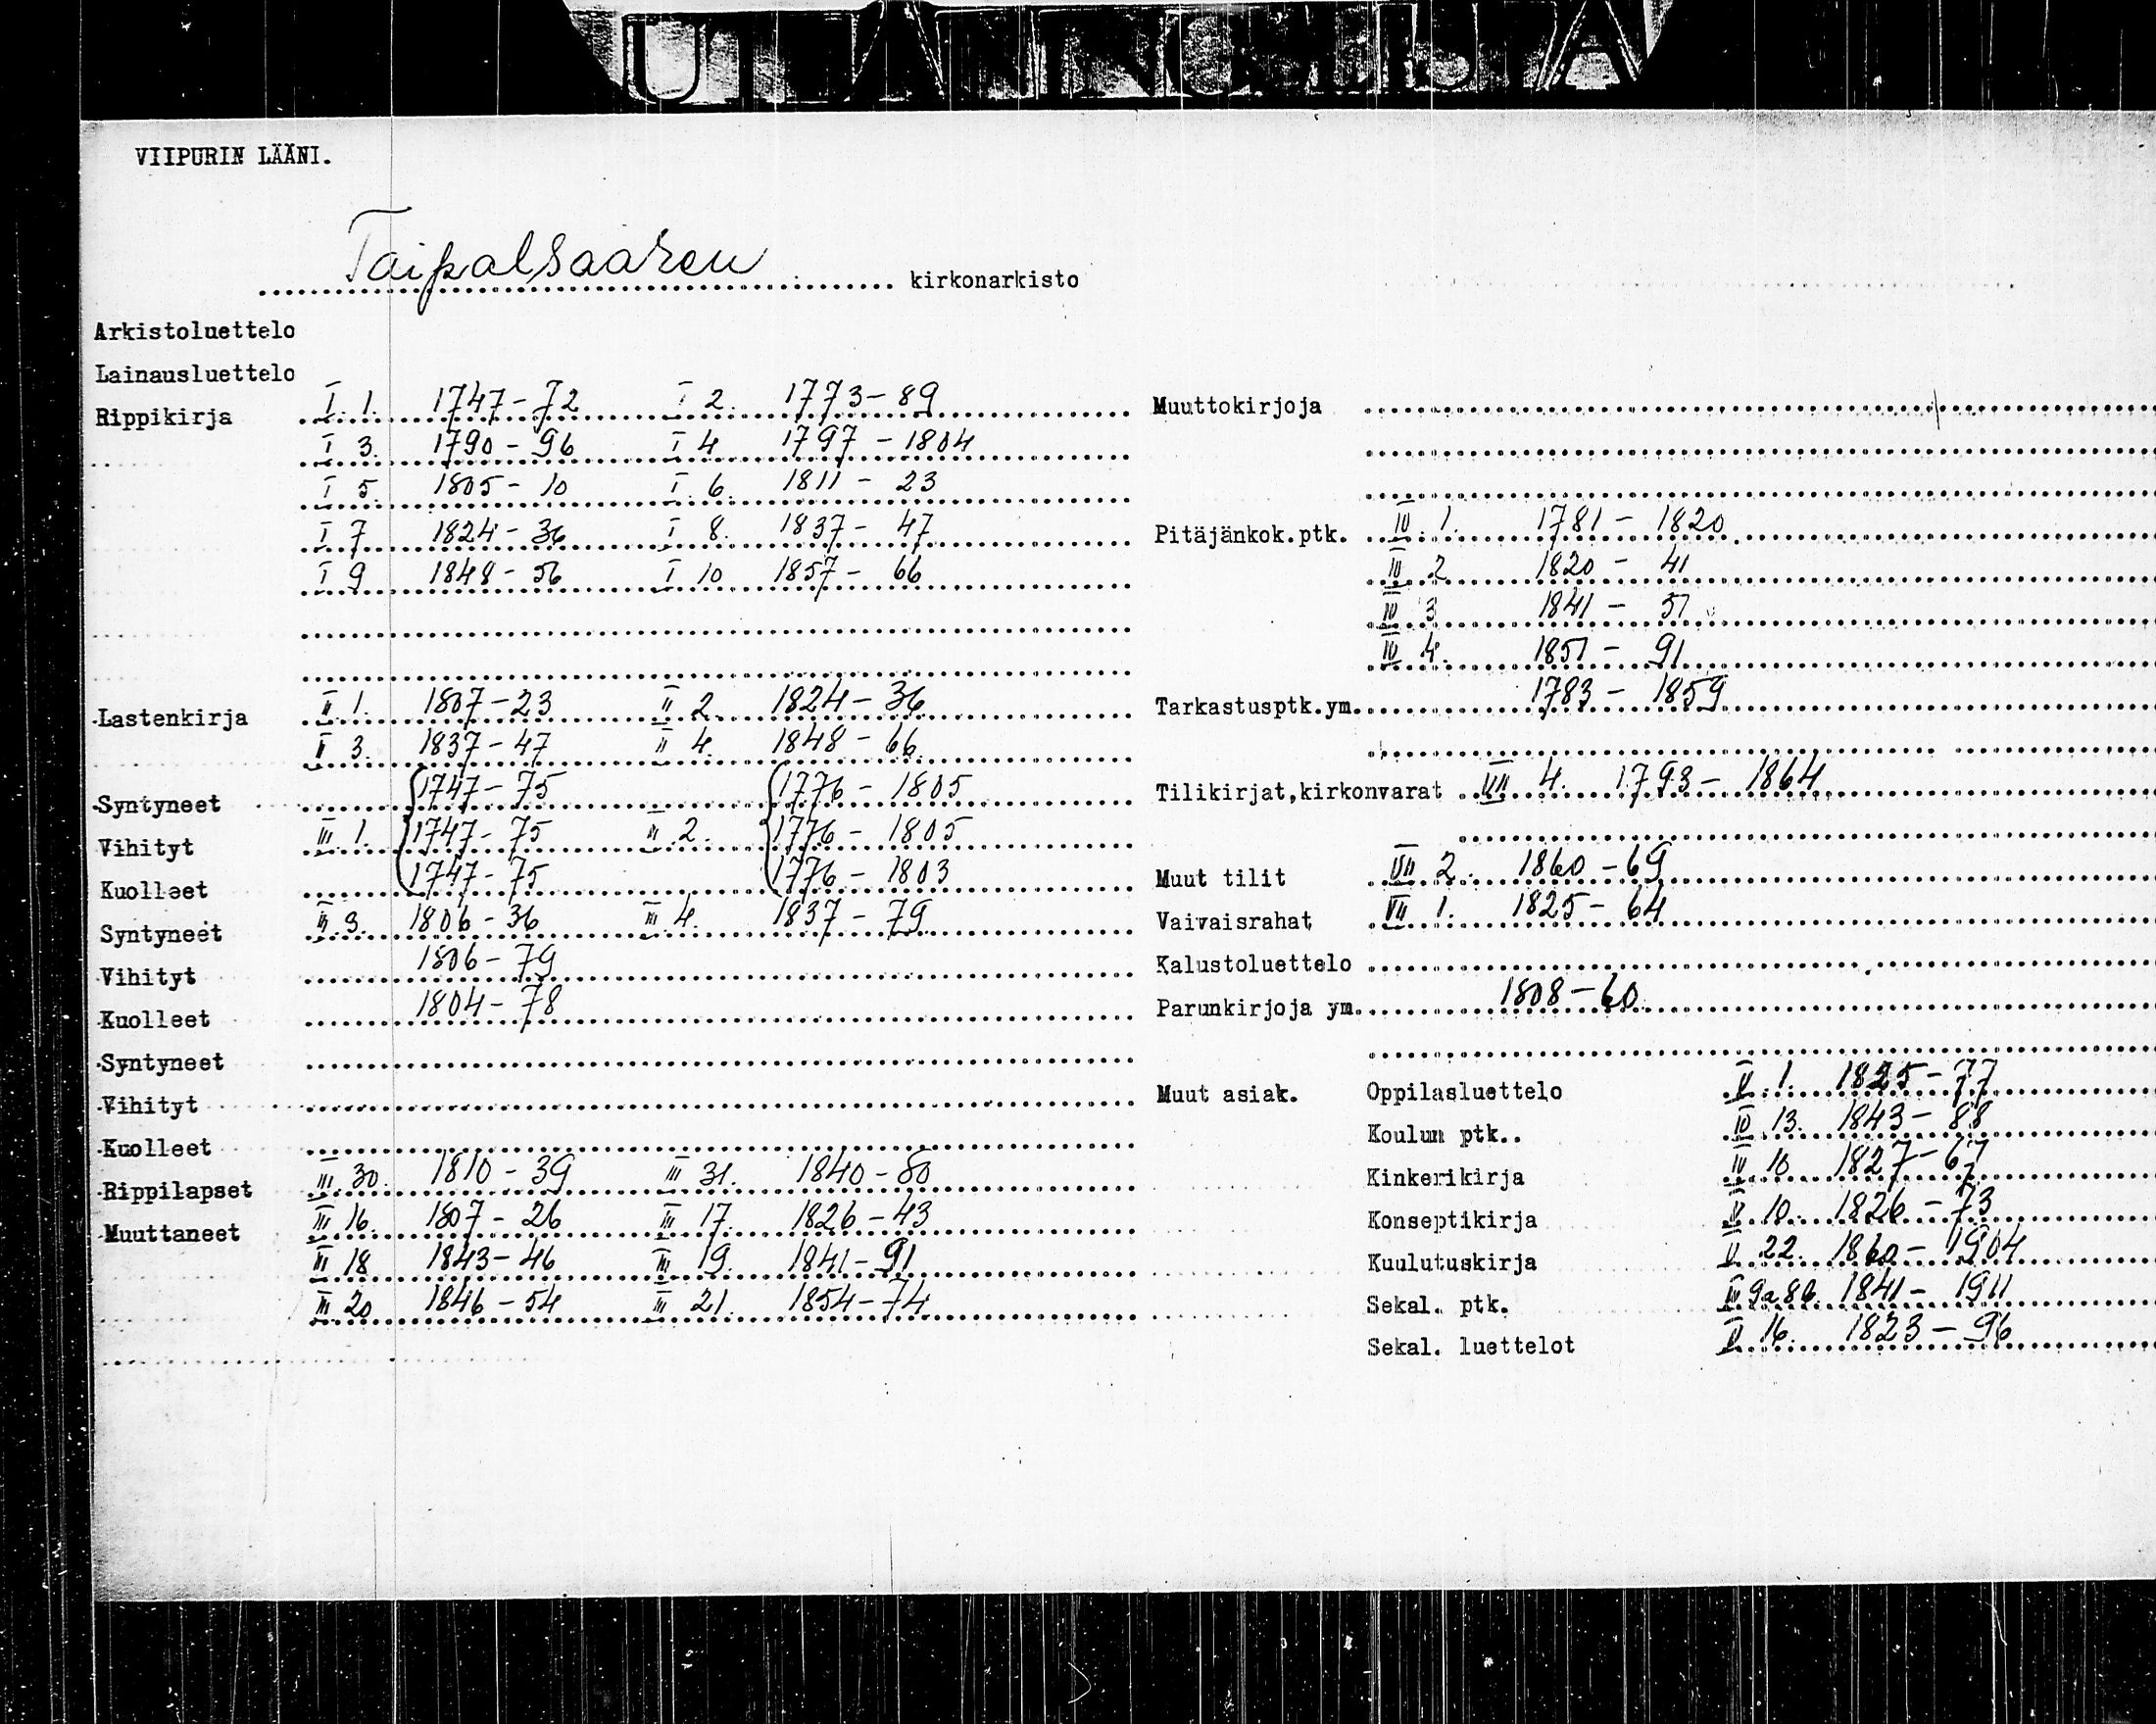 VIIPURIN LÄÄNI.
Taipalsaaren kirkonarkisto
Arkistoluettelo
Lainausluettelo
Rippikirja I 1. 1747-72 I 2. 1773-89
I 3. 1790-96 I 4 1797-1804
I 5. 1805-10 I 6. 1811-23
I 7 1824-36 I 8. 1837-47
I 9 1848-56 I 10 1857-66
Lastenkirja II 1. 1807-23 II 2. 1824-36
II 3. 1837-47 II 4. 1848-66
Syntyneet 1747-75 1776-1805
Vihityt III 1. 1747-75 III 2. 1776-1805
Kuolleet 1747-75 1776-1803
Syntyneet III 3. 1806-36 III 4. 1837-79
Vihityt 1806-79
Kuolleet 1804-78
Syntyneet
Vihityt
Kuolleet
Rippilapset III 30. 1810-39 III 31. 1840-80
Muuttaneet III 16. 1807-26 III 17. 1826-43
III 18 1843-46 III 19. 1841-91
III 20 1846-54 III 21. 1854-74
Muuttokirjoja
Pitäjänkok.ptk. IV 1. 1781-1820
IV 2 1820-41
IV 3 1841-51
IV 4. 1851-91
Tarkastusptk.ym. 1783-1859
Tilikirjat,kirkonvarat VII 4. 1793-1864
Muut tilit VII 2. 1860-69
Vaivaisrahat VII 1. 1825-64
Kalustoluettelo
Parunkirjoja ym. 1808-60
Muut asiak. Oppilasluettelo V 1. 1825-77
Koulun ptk.. IV 13. 1843-88
Kinkerikirja IV 10 1827-67
Konseptikirja V 10. 1826-73
Kuulutuskirja V 22. 1860-1904
Sekal. ptk. IV 9a8b 1841-1911
Sekal. luettelot V 16. 1823-96